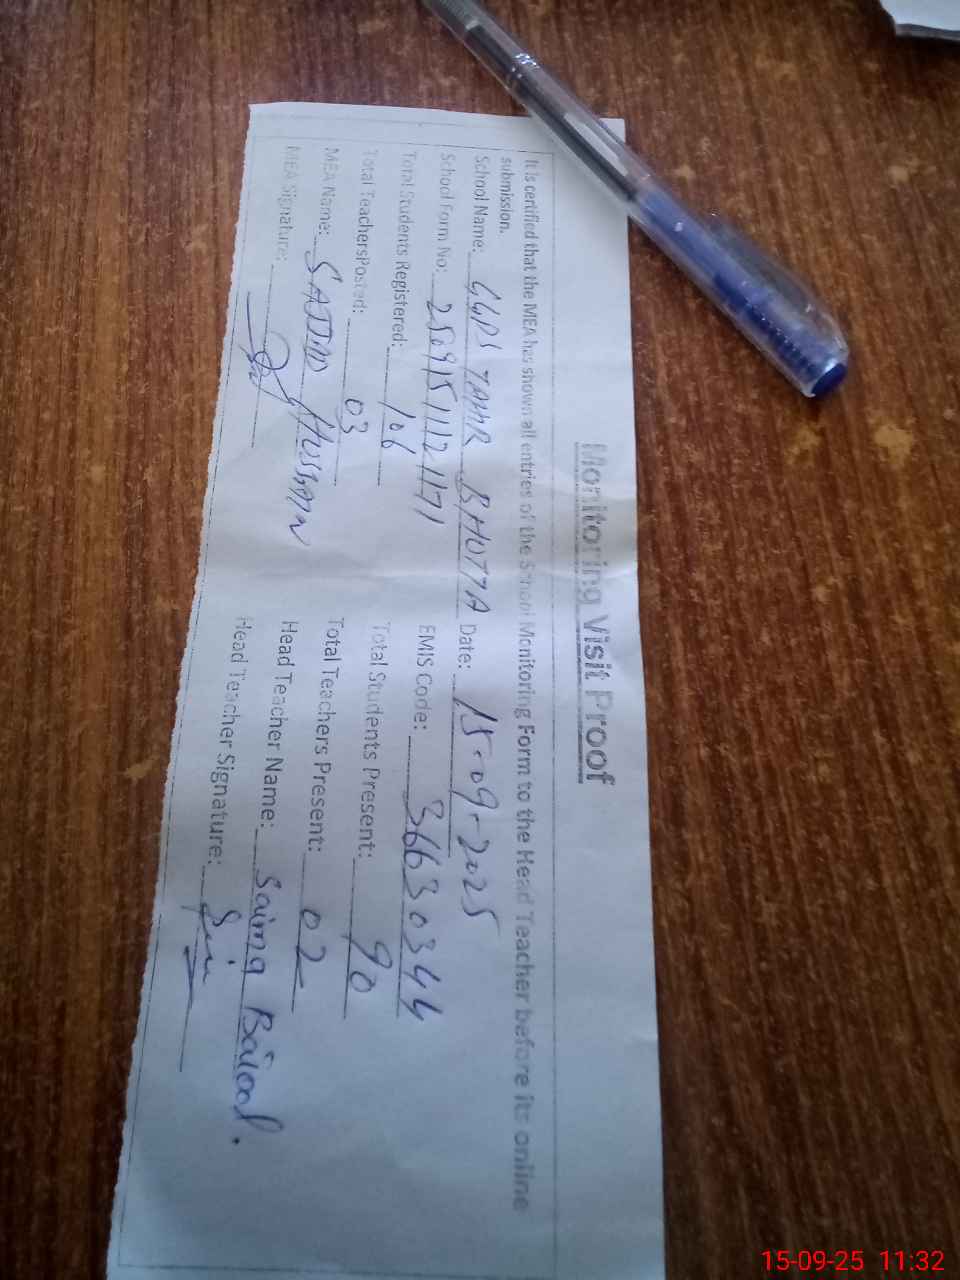 Monitoring Visit Proof
It is certified that the MEA has shown all entries of the School Monitoring Form to the Head Teacher before its online
submission.
School Name: GGPS TAHAR BHOTTA Date: 15-09-2025
School Form No: 250915111211171 EMIS Code: 36630344
Total Students Registered: 106 Total Students Present: 90
Total TeachersPosted: 03 Total Teachers Present: 02
MEA Name: SAJJAD HUSSAIN Head Teacher Name: Saima
MEA Signature: Head Teacher Signature:
15-09-25 11:32